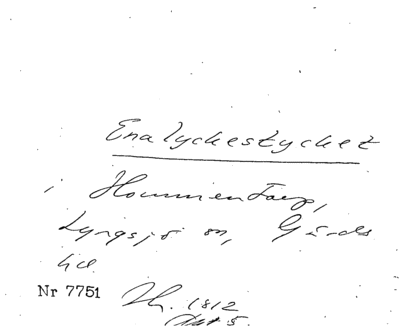 Enalyckestycket
Hommentorp,
Lyngsjö sn, Gärds
hd.
Nr 7751 Th. 1812